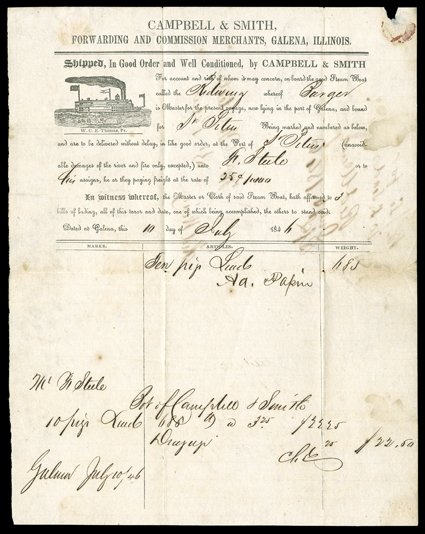 CAMPBELL & SMITH,
FORWARDING AND COMMISSION MERCHANTS, GALENA, ILLINOIS.
Shipped, In Good Order and Well Conditioned, by CAMPBELL & SMITH
For account and risk of whom it may concern, on board the good Steam Boat
called the Redwing whereof Barger
is Master for the present voyage, now lying in the port of Galena, and bound
for St Peters Being marked and numbered as below,
and are to be delivered without delay, in like good order, at the Port of St Peters (unavoid-
able damages of the river and fire only, excepted,) unto
F. Steele or to
his assigns, he or they paying freight at the rate of
25¢
In witness whereof, the Master or Clerk of said Steam Boat, hath affirmed to 3
bills of lading, all of this tenor and date, one of which being accomplished, the others to stand void.
Dated at Galena, this 10 day of July 1846
W. C. E. Thomas, Pr.
MARKS. ARTICLES. WEIGHT.
Ten pigs Lead 685
Ad. Papin
Mr F Steele
Bot of Campbell & Smith
10 pigs Lead 685 lb a 3.25 $22.25
Drayage 25
$22.50
Galena July 10/46